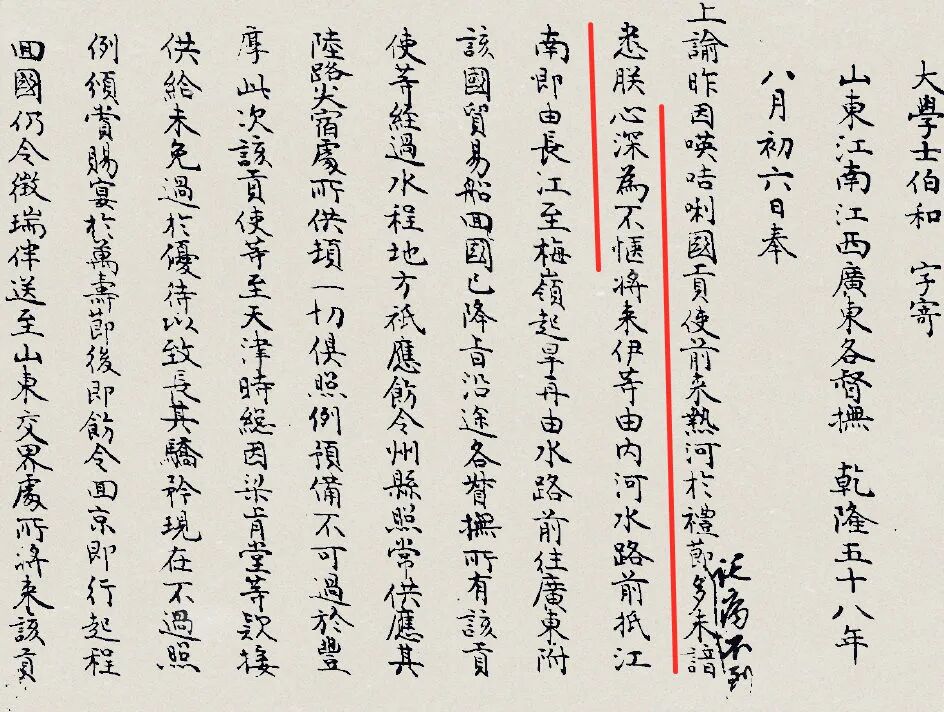 大學士伯和　字寄
山東江南江西廣東各督撫　乾隆五十八年
八月初六日奉
託病不到
上諭昨因暎咭唎國貢使前来熱河於禮節多未諳
悉朕心深為不愜將来伊等由内河水路前抵江
南即由長江至梅嶺起旱再由水路前往廣東附
該國貿易船回國已降旨沿途各督撫所有該貢
使等經過水程地方祇應飭令州縣照常供應其
陸路尖宿處所供頓一切俱照例預備不可過於豐
厚此次該貢使等至天津時總因梁肯堂等欵接
供給未免過於優待以致長其驕矜現在不過照
例頒賞賜宴於萬壽節後即飭令回京即行起程
回國仍令徵瑞伴送至山東交界處所將来該貢